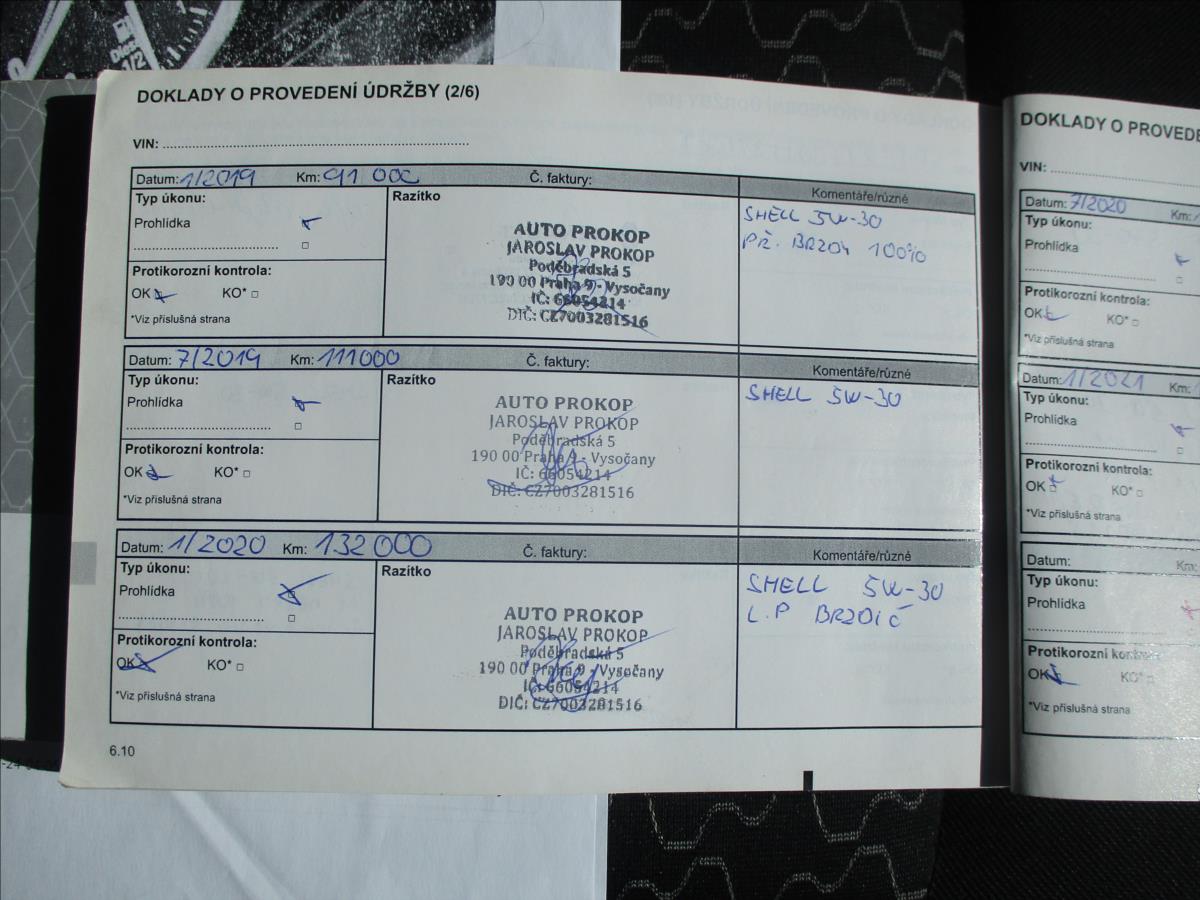 Diesel
1/2
DOKLADY O PROVEDENÍ ÚDRŽBY (2/6)
VIN:
Datum: 1/2019 Km: 91 000 Č. faktury:
Typ úkonu:
Prohlídka
Protikorozní kontrola:
OK KO*
*Viz příslušná strana
Razítko
AUTO PROKOP
JAROSLAV PROKOP
Poděbradská 5
190 00 Praha 9 - Vysočany
IČ: 66054214
DIČ: CZ7003281516
Komentáře/různé
SHELL 5W-30
PŘ. BRZDY 100%
Datum: 7/2019 Km: 111000 Č. faktury:
Typ úkonu:
Prohlídka
Protikorozní kontrola:
OK KO*
*Viz příslušná strana
Razítko
AUTO PROKOP
JAROSLAV PROKOP
Poděbradská 5
190 00 Praha 9 - Vysočany
IČ: 66054214
DIČ: CZ7003281516
Komentáře/různé
SHELL 5W-30
Datum: 1/2020 Km: 132 000 Č. faktury:
Typ úkonu:
Prohlídka
Protikorozní kontrola:
OK KO*
*Viz příslušná strana
Razítko
AUTO PROKOP
JAROSLAV PROKOP
Poděbradská 5
190 00 Praha 9 - Vysočany
IČ: 66054214
DIČ: CZ7003281516
Komentáře/různé
SHELL 5W-30
L.P BRZDIČ
6.10
DOKLADY O PROVEDE
VIN:
Datum: 7/2020 Km:
Typ úkonu:
Prohlídka
Protikorozní kontrola:
OK KO*
*Viz příslušná strana
Datum: 1/2021 Km:
Typ úkonu:
Prohlídka
Protikorozní kontrola:
OK KO*
*Viz příslušná strana
Datum: Km:
Typ úkonu:
Prohlídka
Protikorozní kontrola:
OK KO*
*Viz příslušná strana